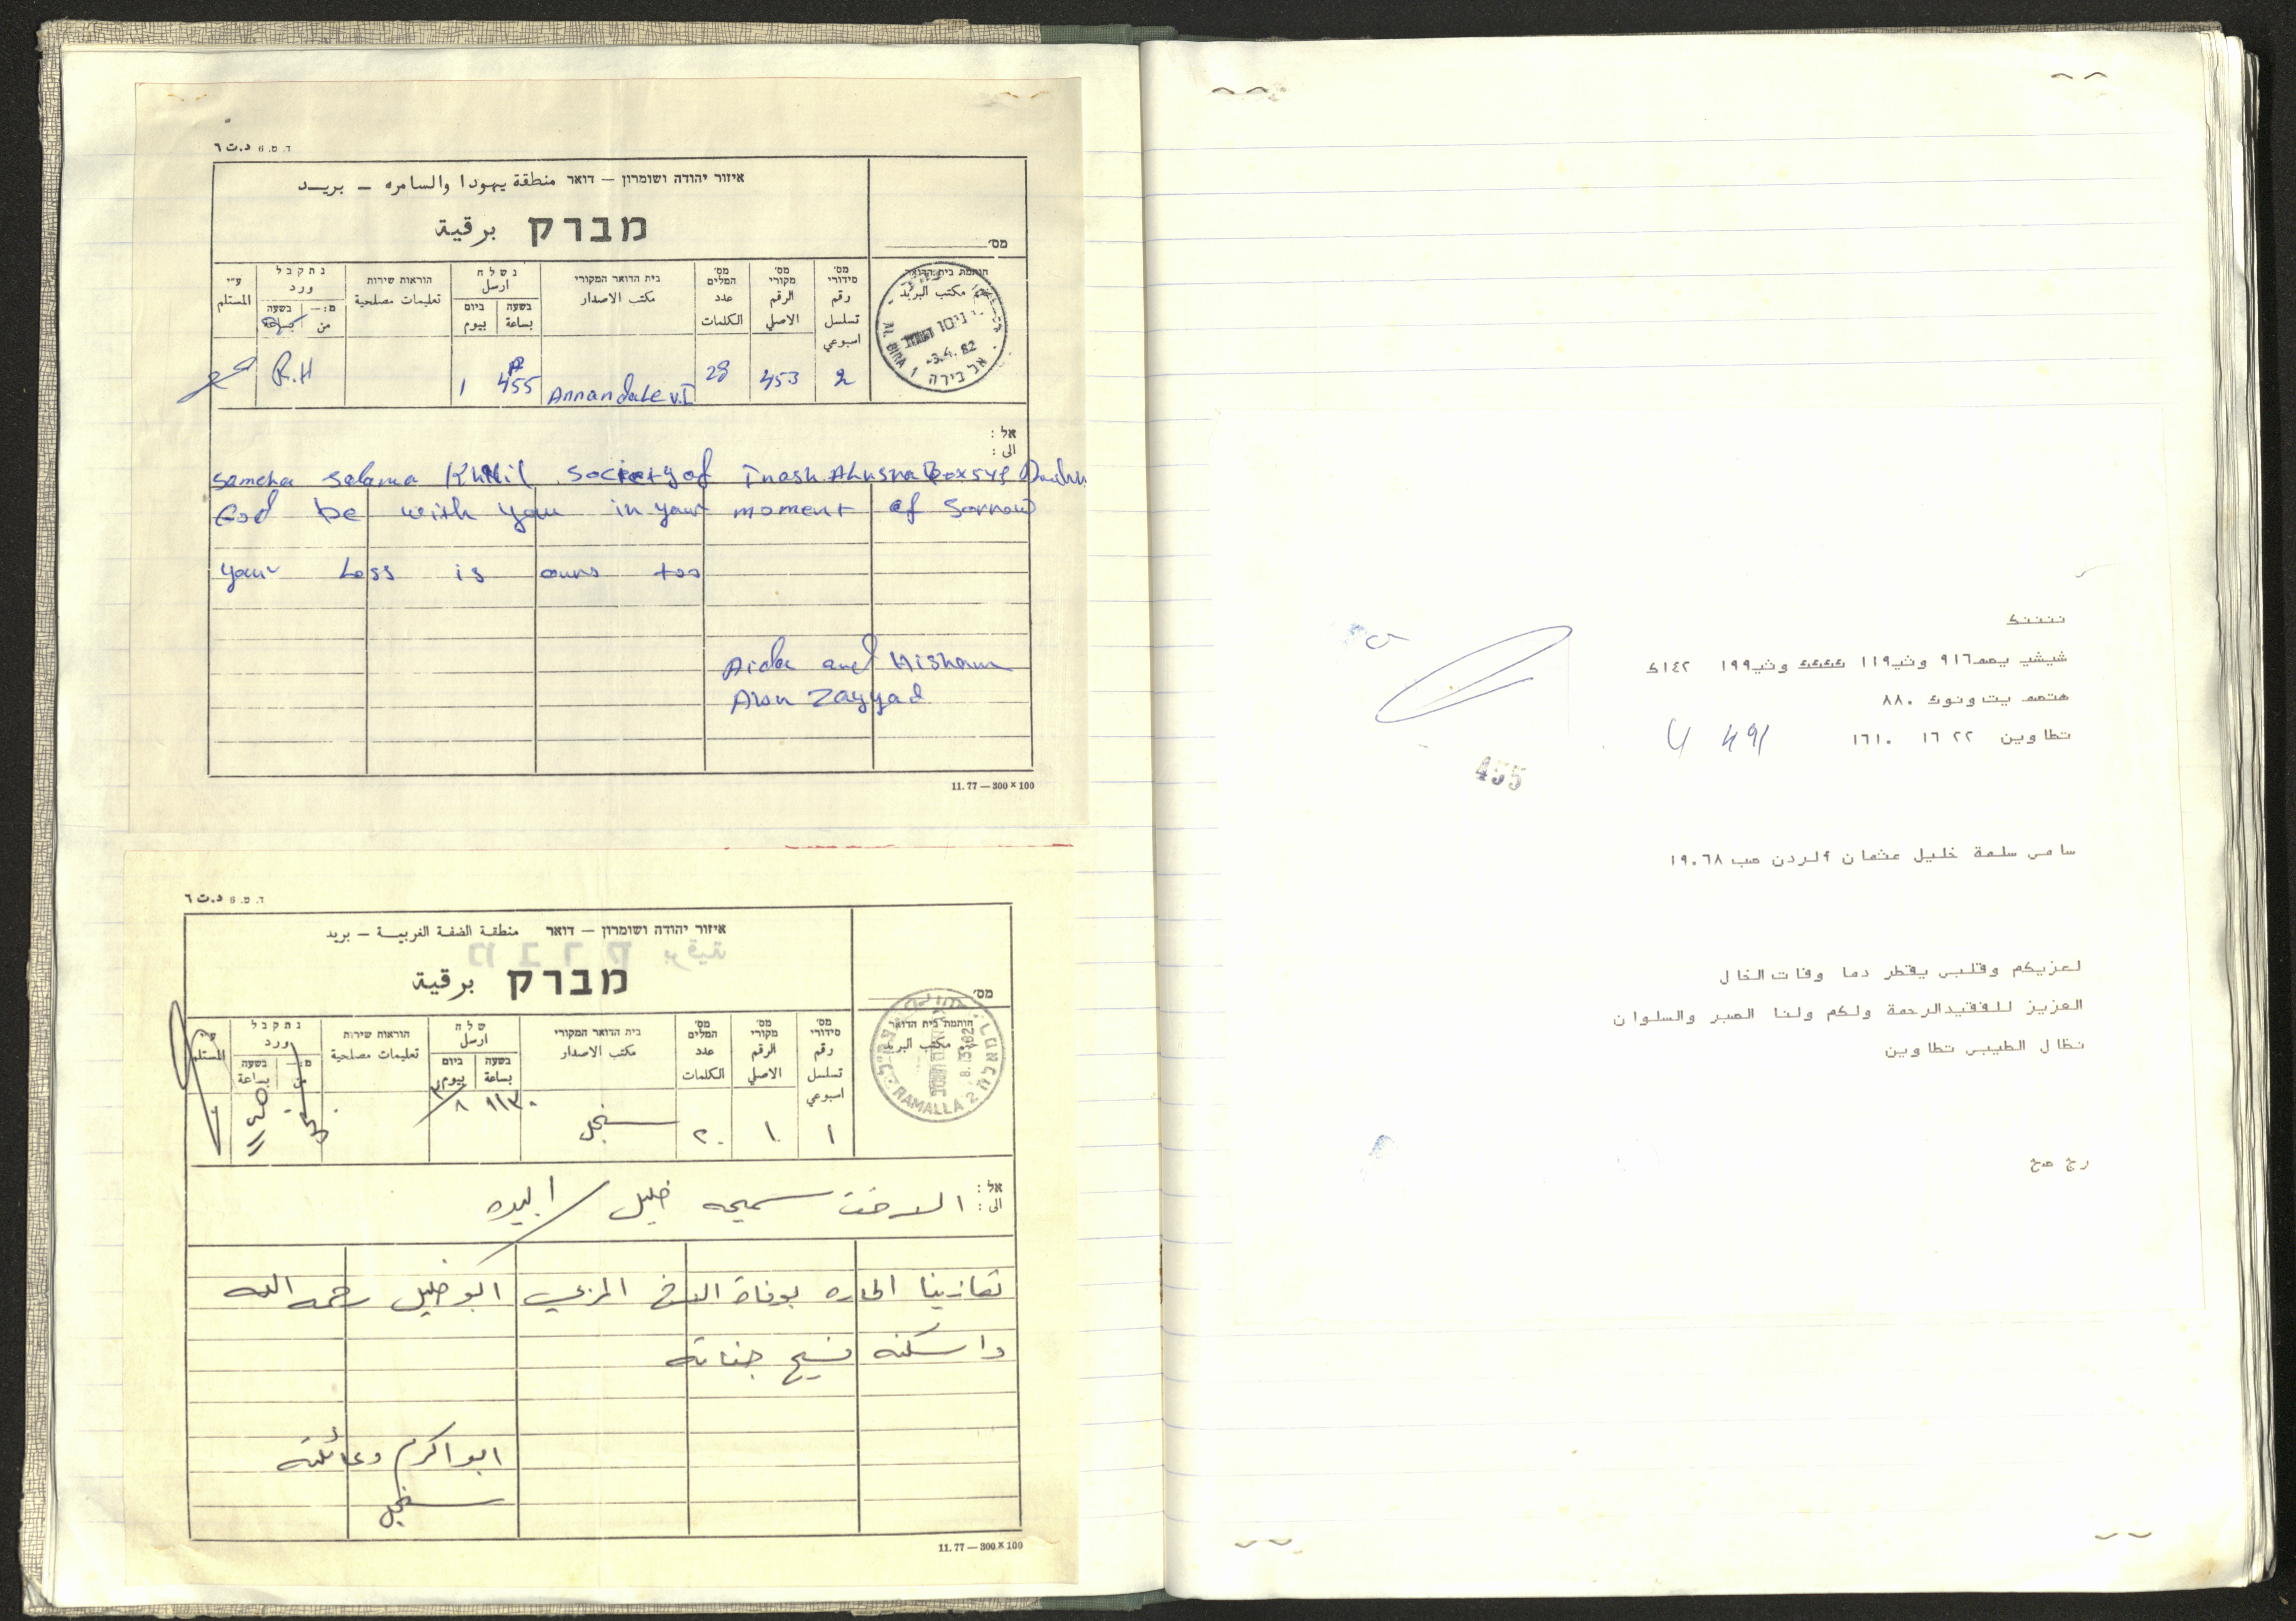 ד. ט. 6 د.ت ٦
איזור יהודה ושומרון — דואר منطقة يهودا والسامره — بريد
מברק برقية
מס׳
חותמת בית הדואר
مكتب البريد
מס׳ סידורי رقم تسلسل اسبوعي
מס׳ מקורי الرقم الاصلي
מס׳ המלים عدد الكلمات
בית הדואר המקורי مكتب الاصدار
נשלח ارسل
בשעה بساعة ביום بيوم
הוראות שירות تعليمات مصلحية
נתקבל ورد
בשעה بساعة מ:— من
ע״י المستلم
AL BIRA 1 -3.4.82 אל בירה
2 453 28 Annandale v.I 455 1 R.H
אל :
الى :
Sameha Salama Khlil Society of Inash Alusra Box 545
God be with you in your moment of Sorrow
your Loss is ours too
Aida and Hisham
Abu Zayyad
11.77 — 300 × 100
ד. ט. 6 د.ت ٦
איזור יהודה ושומרון — דואר منطقة الضفة الغربية — بريد
מברק برقية
מס׳
חותמת בית הדואר
مكتب البريد
מס׳ סידורי رقم تسلسل اسبوعي
מס׳ מקורי الرقم الاصلي
מס׳ המלים عدد الكلمات
בית הדואר המקורי مكتب الاصدار
שלח ارسل
בשעה بساعة ביום بيوم
הוראות שירות تعليمات مصلحية
נתקבל ورد
בשעה بساعة מ:— من
ע״י المستلم
RAMALLA 2
١ ١٠ ٢٠ سنجل ١١٣٠ ٨/٣ ١١٤٥
אל :
الى : الاخت سميحه خليل / البيره
تعازينا الحاره بوفاة الاخ المربي ابو خليل رحمه الله
واسكنه فسيح جناته
ابو اكرم وعائلته
سنجل
11.77 — 300 × 100
ننننك
شيشي يمم٩١٦ وني١١٩ ععععع وني١٩٩ ١٤٢ك
هتمم يت ونوك ٨٨٠
تطاوين ٢٢ ١٦ ١٦١٠
455
سامي سلمة خليل عثمان الردن صب ١٩٠٦٨
لعزيكم وقلبي يقطر دما وفات الخال
العزيز للفقيدالرحمة ولكم ولنا الصبر والسلوان
نظال الطيبي تطاوين
رج مح